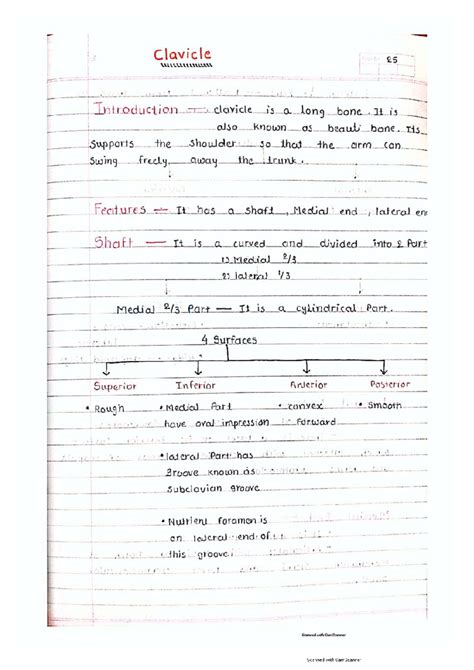 Clavicle
25
Introduction — clavicle is a long bone. It is
also known as beauti bone. Its
supports the shoulder so that the arm can
swing freely away the trunk.
Features — It has a shaft, Medial end, lateral en
Shaft — It is a curved and divided into 2 Part
1) Medial 2/3
2) lateral 1/3
Medial 2/3 Part — It is a cylindrical Part.
4 Surfaces
Superior Inferior Anterior Posterior
• Rough • Medial Part • convex • Smooth
have oval impression forward
• lateral Part has
groove known as
Subclavian groove
• Nutrient foramen is
on lateral end of
this groove
Scanned with CamScanner
Scanned with CamScanner